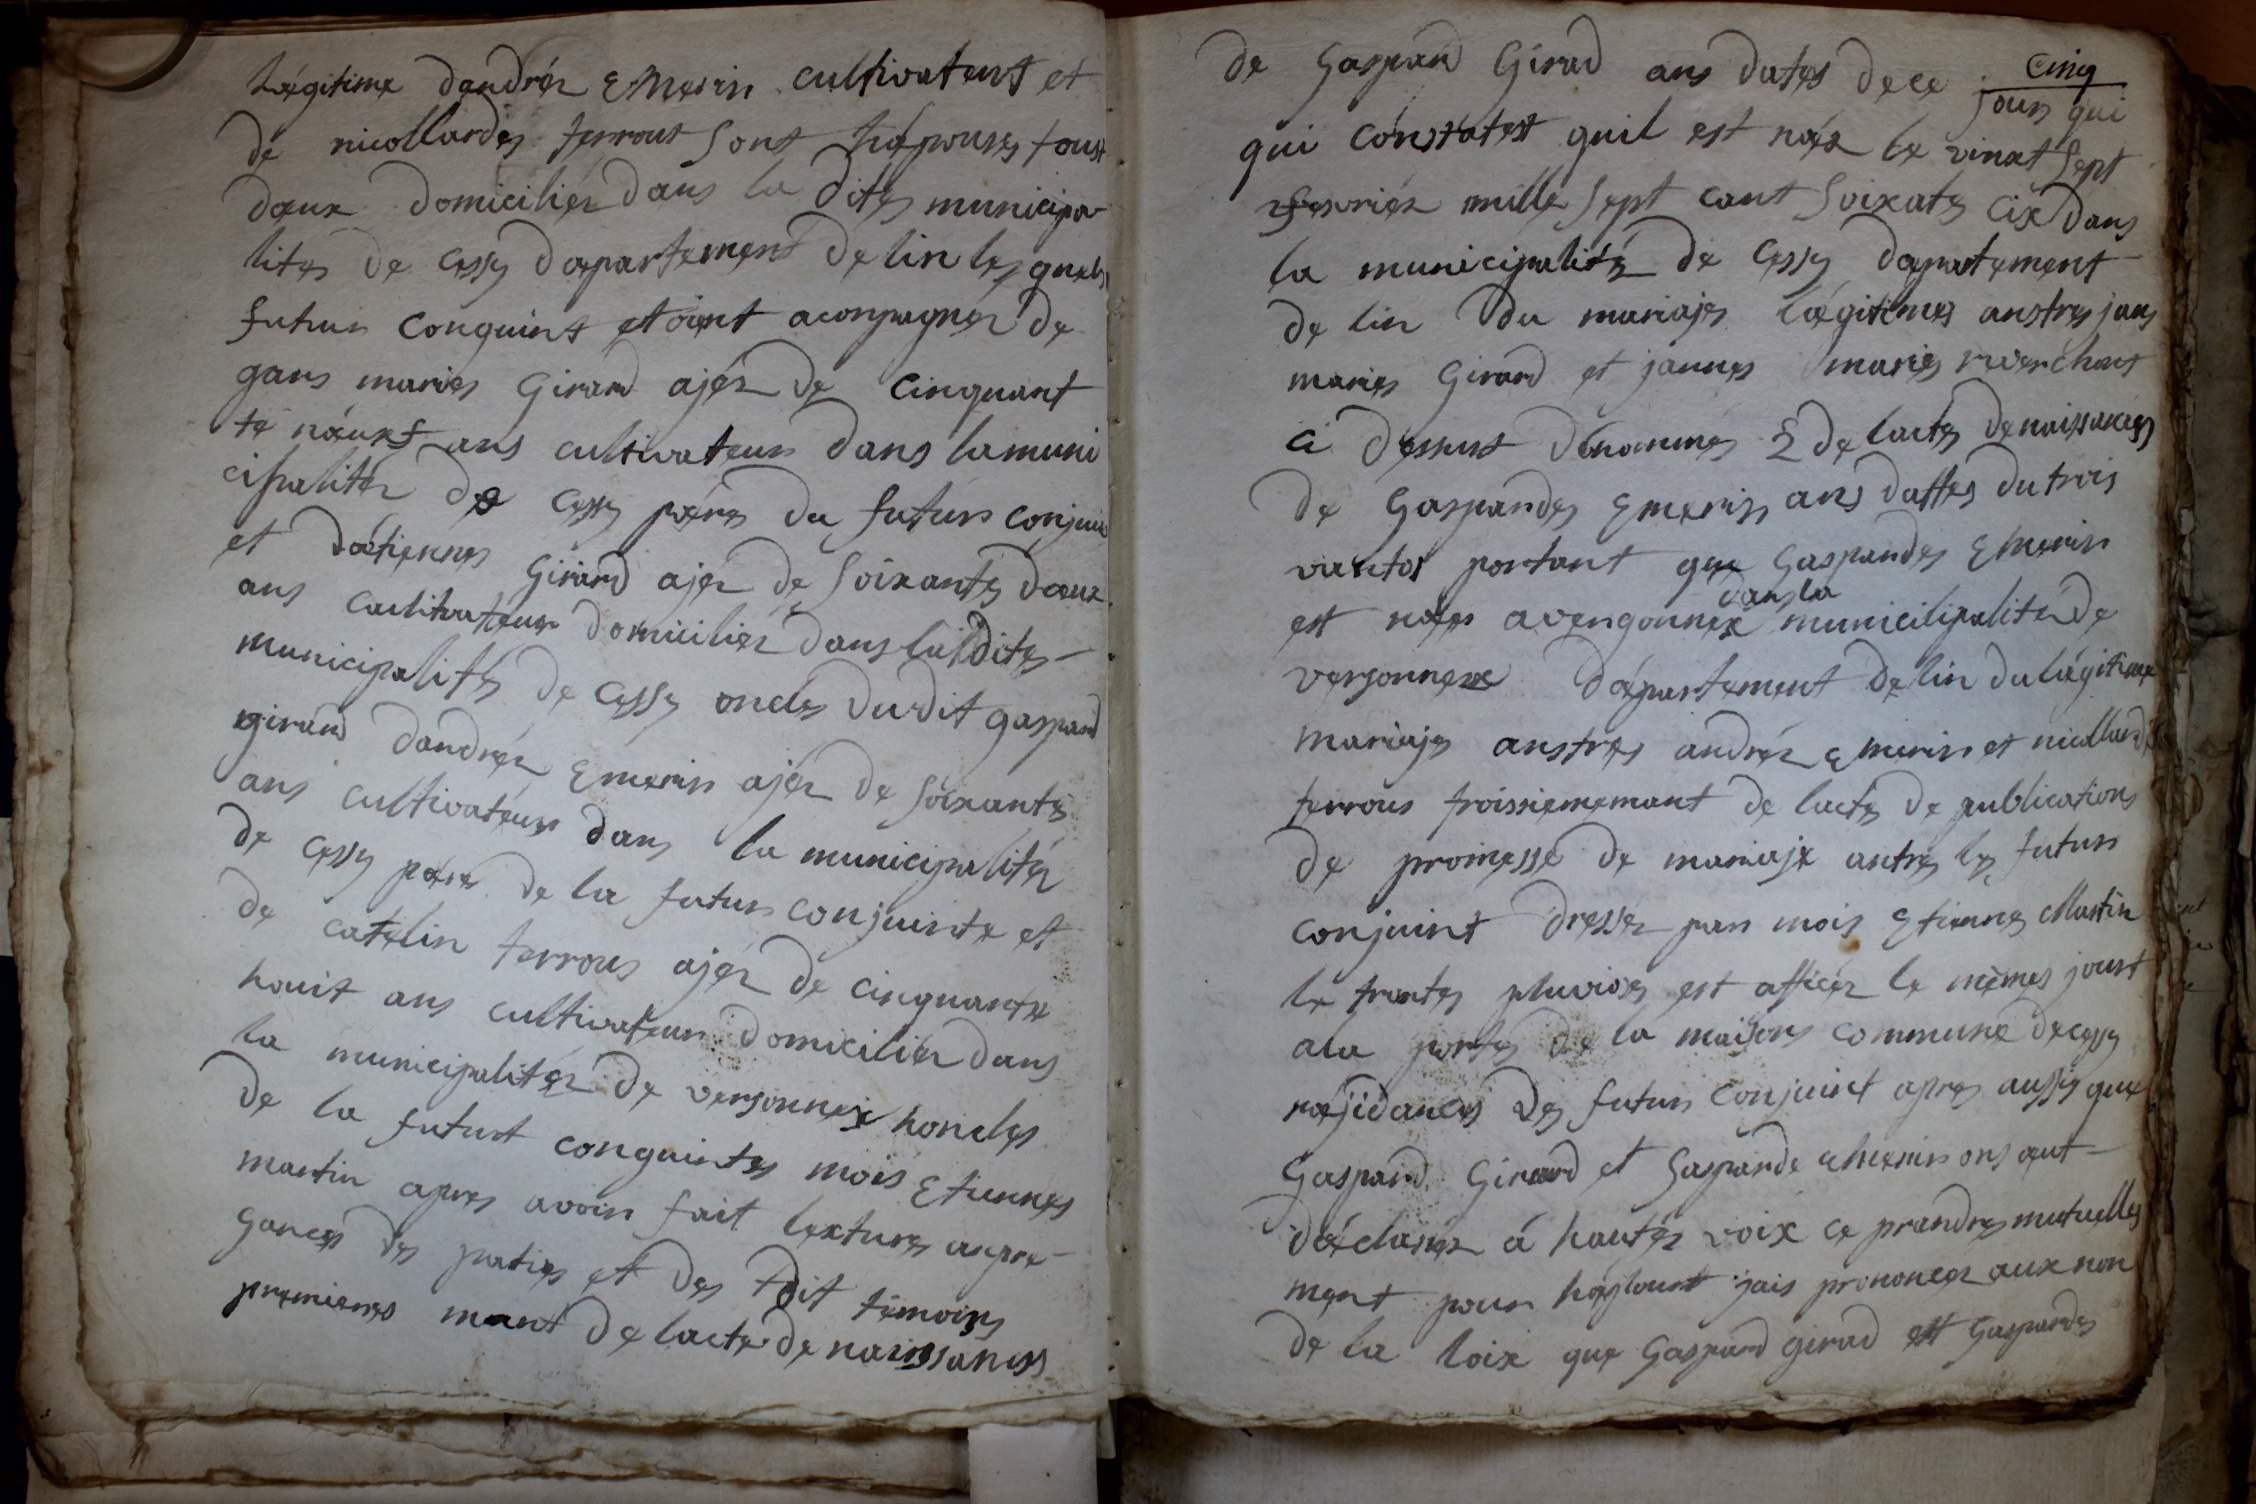 Légitime dandréz Emerin cultivateurt et
de nicollardes terrout Sont hépouses tous
deux domiciliéz dans la dites municipa
lites de Cessy département de lin les quels
futur conquint etoient aconpagnéz de
gans maries Girard ajéz de cinquant
te neuxf ans cultivateur dans la muni
cipalitéz de Cessy péres du futur conjuin
et détiennes Girard ajéz de Soixantes deux
ans cultivateur domiciliéz dans la dites
municipalités de Cessy oncles du dit gaspard
girard dandréz Emerin ajéz de Soixantes
ans cultivateur dans la municipalitéz
de Cessy péres de la futur conjuinte et
de catelin terrous ajéz de cinquante
houit ans cultivateur domiciliéz dans
la municipalitéz de versonnex honcles
de la futurt conguintes mois Etiennes
martin apres avoir fait lextures anpre
sances des parties et des tdit témoins
premieres mant de lacte de naissances
cinq
de Gaspard Girard ans dates de ce jour qui
qui constatest quil est néz le vinxt Sept
fevriéz mille Sept cant Soixates cix dans
la municipalitéz de Cessy département
de lin du mariajes légitimes anstres jans
maries Girard et jannes maries reverchont
ci dessust dénommés 2 de lactes de naissances
de Gaspardes Emerin ans dattes du trois
vantos portant que Gaspardes Emerin
est nées avengonnex dans la municilipalité de
versonnex département de lin du légitime
mariajes anstres andréz Emerin et nicollardes
terrous troissiememant de lactes de publications
de promesse de mariaje antres les futur
conjuint dresséz par mois Etiennes Martin
le trantes pluviôses est afficéz le mêmes jourt
a la portes de la maisons commune de cessy
réjidances des futur conjuint apres aussis que
Gaspard Girard et Gasparde Emerin ons eut
décларéz á hautéz voix ce prandres mutuelles
ment pour héplourt jais prononcéz aux non
de la loix que Gaspard girard ett Gaspardes